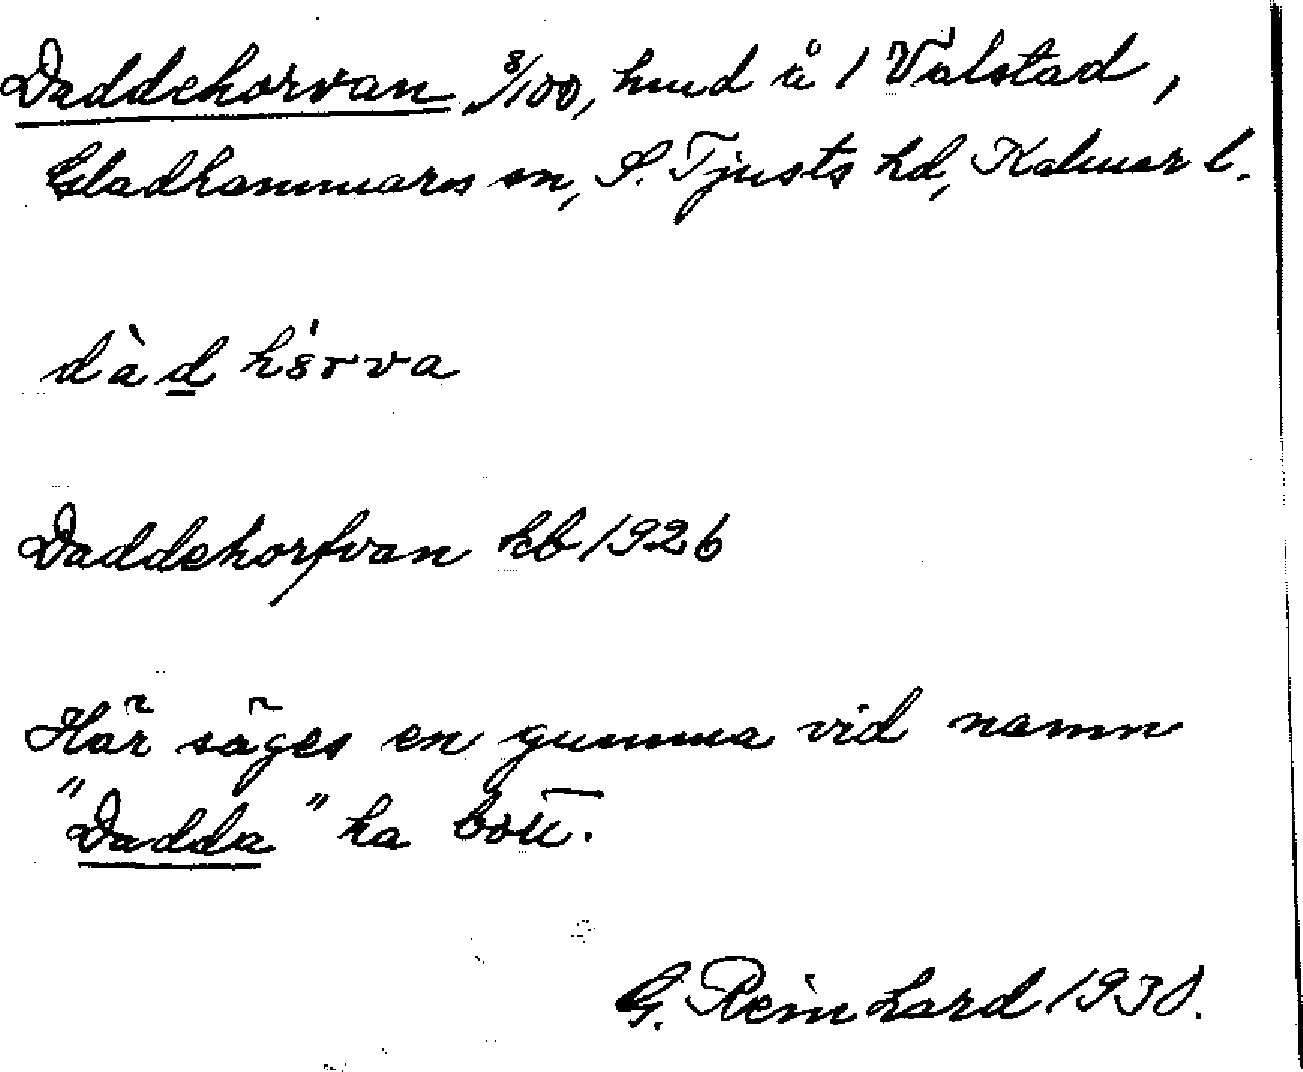 Daddehorvan 8/100, hmd å 1 Välstad,
Gladhammars sn, S. Tjusts hd, Kalmar l.
dàd hórva
Daddehorfvan kb 1926
Här säges en gumma vid namn
"Dadda" ha bott.
G. Reinhard 1930.